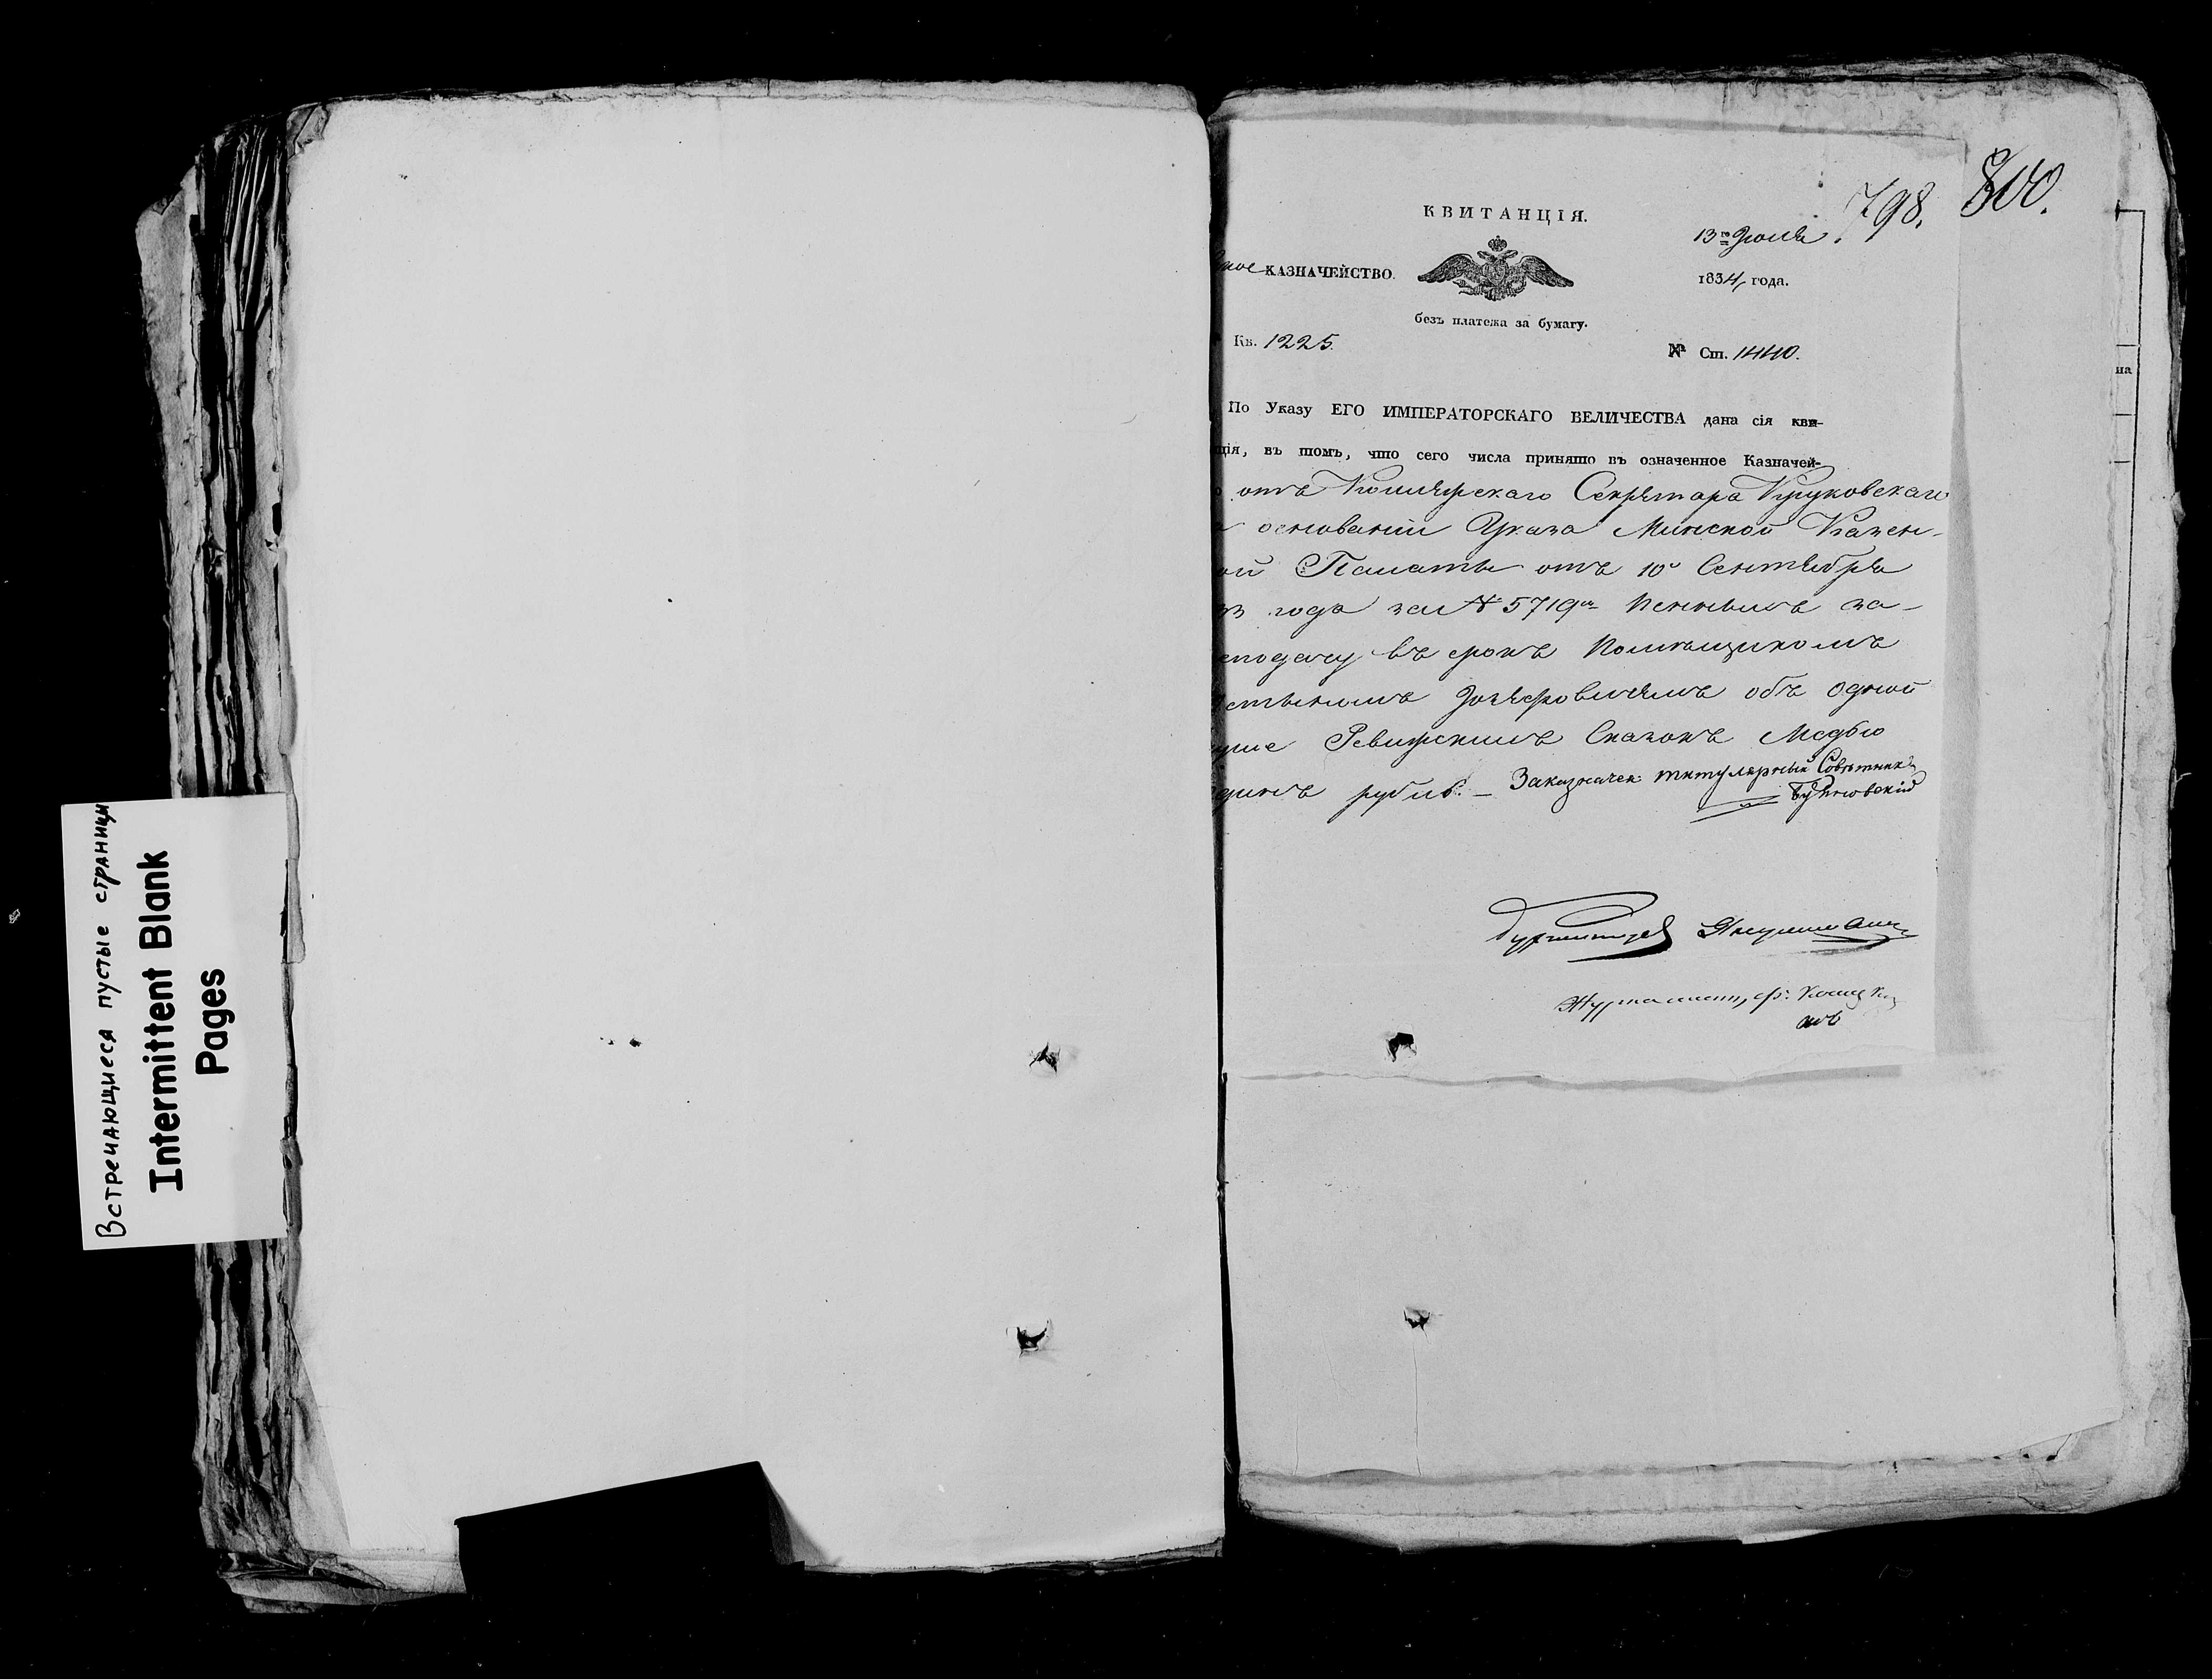 Встречающиеся пустые страницы
Intermittent Blank
Pages
798. 800.
КВИТАНЦІЯ.
13го Іюля
ное КАЗНАЧЕЙСТВО.
1834 года.
безъ платежа за бумагу.
Кв. 1225.
№ Ст. 1440.
на
По Указу ЕГО ИМПЕРАТОРСКАГО ВЕЛИЧЕСТВА дана сія кви-
ція, въ томъ, что сего числа принято въ означенное Казначей-
отъ Коллежскаго Секретара Круковскаго
основаніи Указа Минской Казен-
ой Палаты отъ 10 Сентября
33 года за № 5719 пенныхъ за
еподачу въ срокъ Помѣщикомъ
объ одной
уше Ревижскихъ Сказокъ Медью
динъ рубль. — Заказначея титулярный Совѣтникъ
Журналистъ, ф.